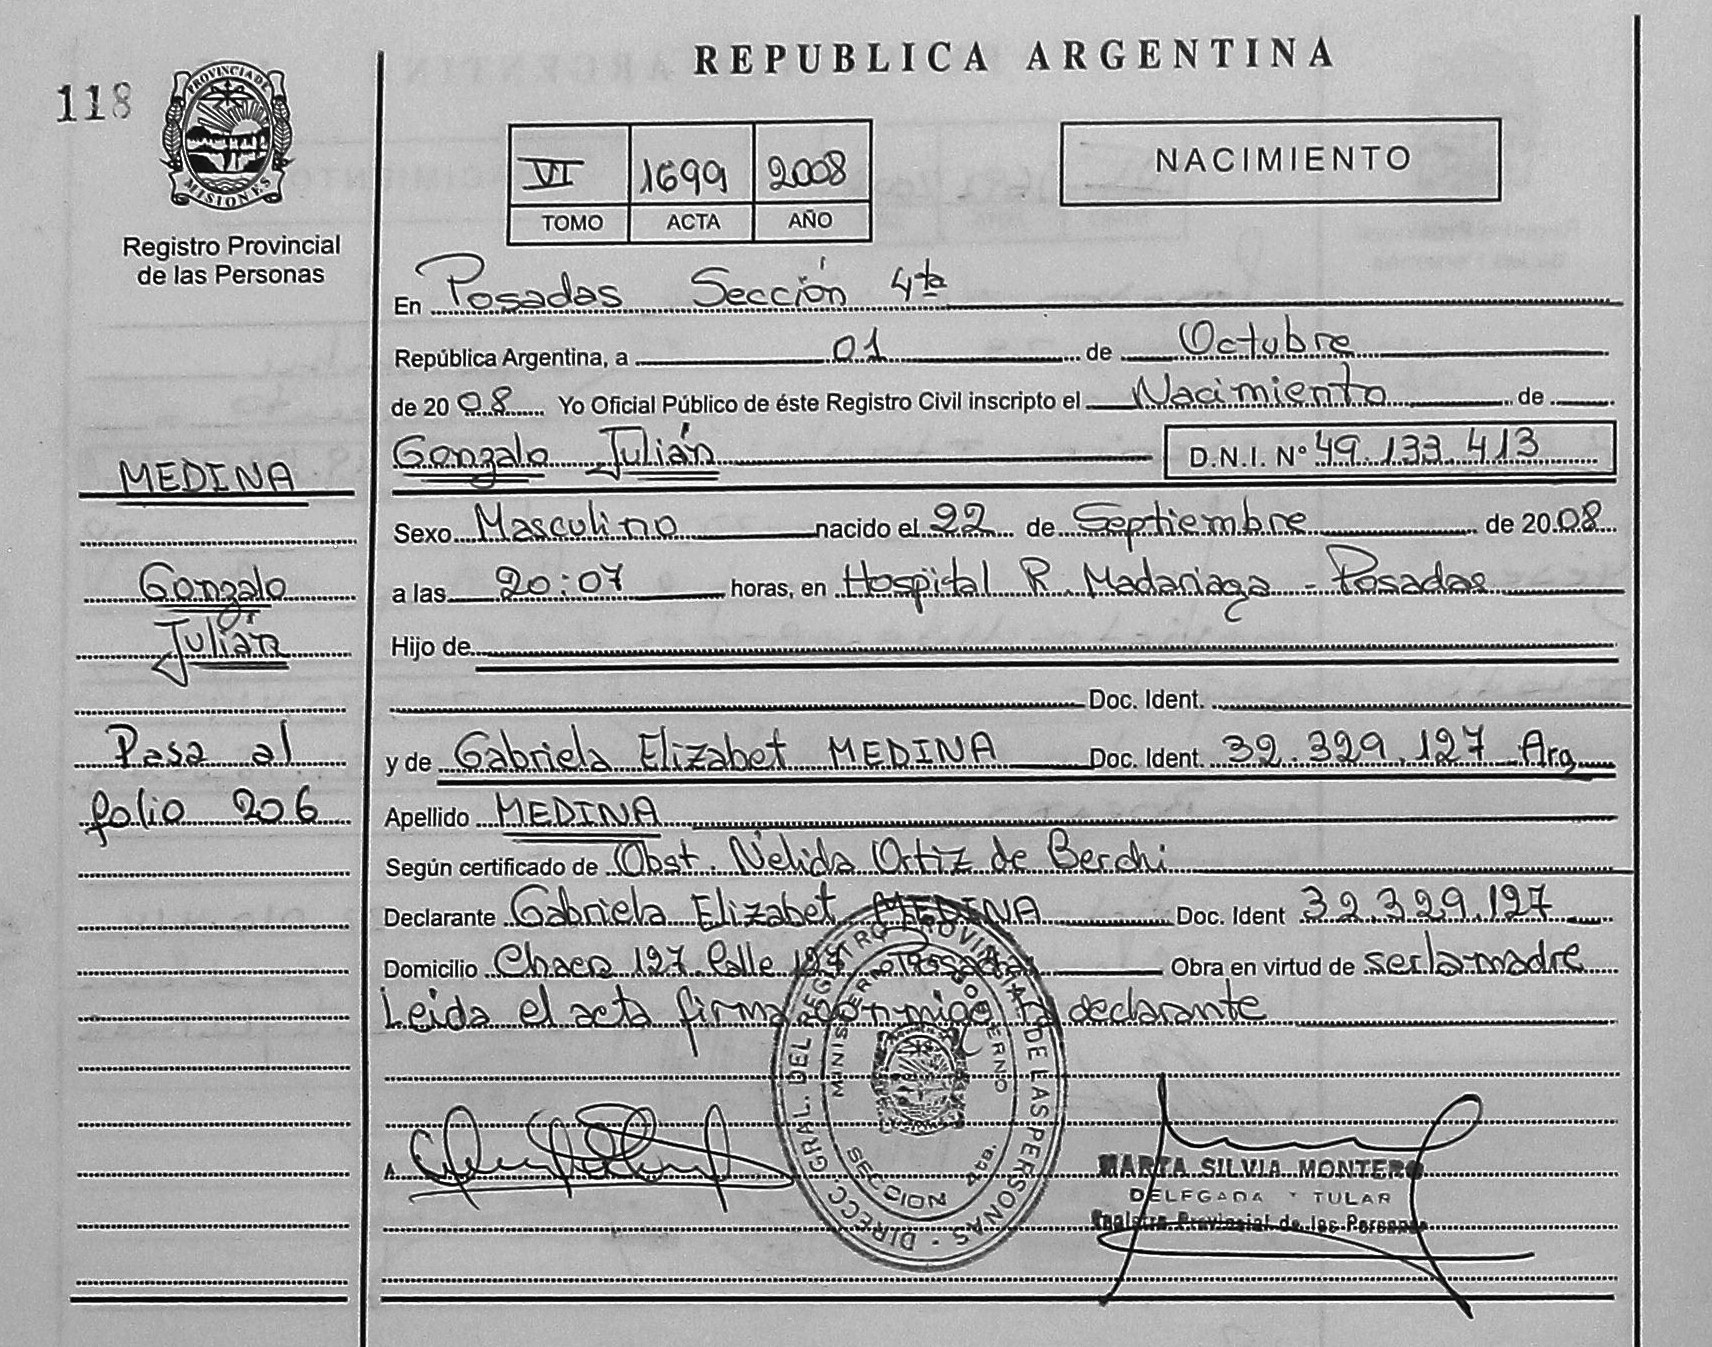 REPUBLICA ARGENTINA
118
PROVINCIA DE
MISIONES
Registro Provincial
de las Personas
VI 1699 2008
TOMO ACTA AÑO
NACIMIENTO
En Posadas Sección 4ta
República Argentina, a 01 de Octubre
de 2008 Yo Oficial Público de éste Registro Civil inscripto el Nacimiento de
Gonzalo Julián D.N.I. N° 49.133.413
MEDINA
Gonzalo
Julián
Pasa al
folio 206
Sexo Masculino nacido el 22 de Septiembre de 2008
a las 20:07 horas, en Hospital R. Madariaga - Posadas
Hijo de
Doc. Ident.
y de Gabriela Elizabet MEDINA Doc. Ident. 32.329.127 Arg
Apellido MEDINA
Según certificado de Obst. Nélida Ortiz de Berchi
Declarante Gabriela Elizabet MEDINA Doc. Ident 32.329.127
Domicilio Chacra 127 Calle 127 Posadas Obra en virtud de ser la madre
Leida el acta firma conmigo la declarante
DIRECC. GRAL. DEL REGISTRO PROVINCIAL DE LAS PERSONAS -
MINISTERIO DE GOBIERNO
SECCION 4ta.
MARTA SILVIA MONTERO
DELEGADA TITULAR
Registro Provincial de las Personas